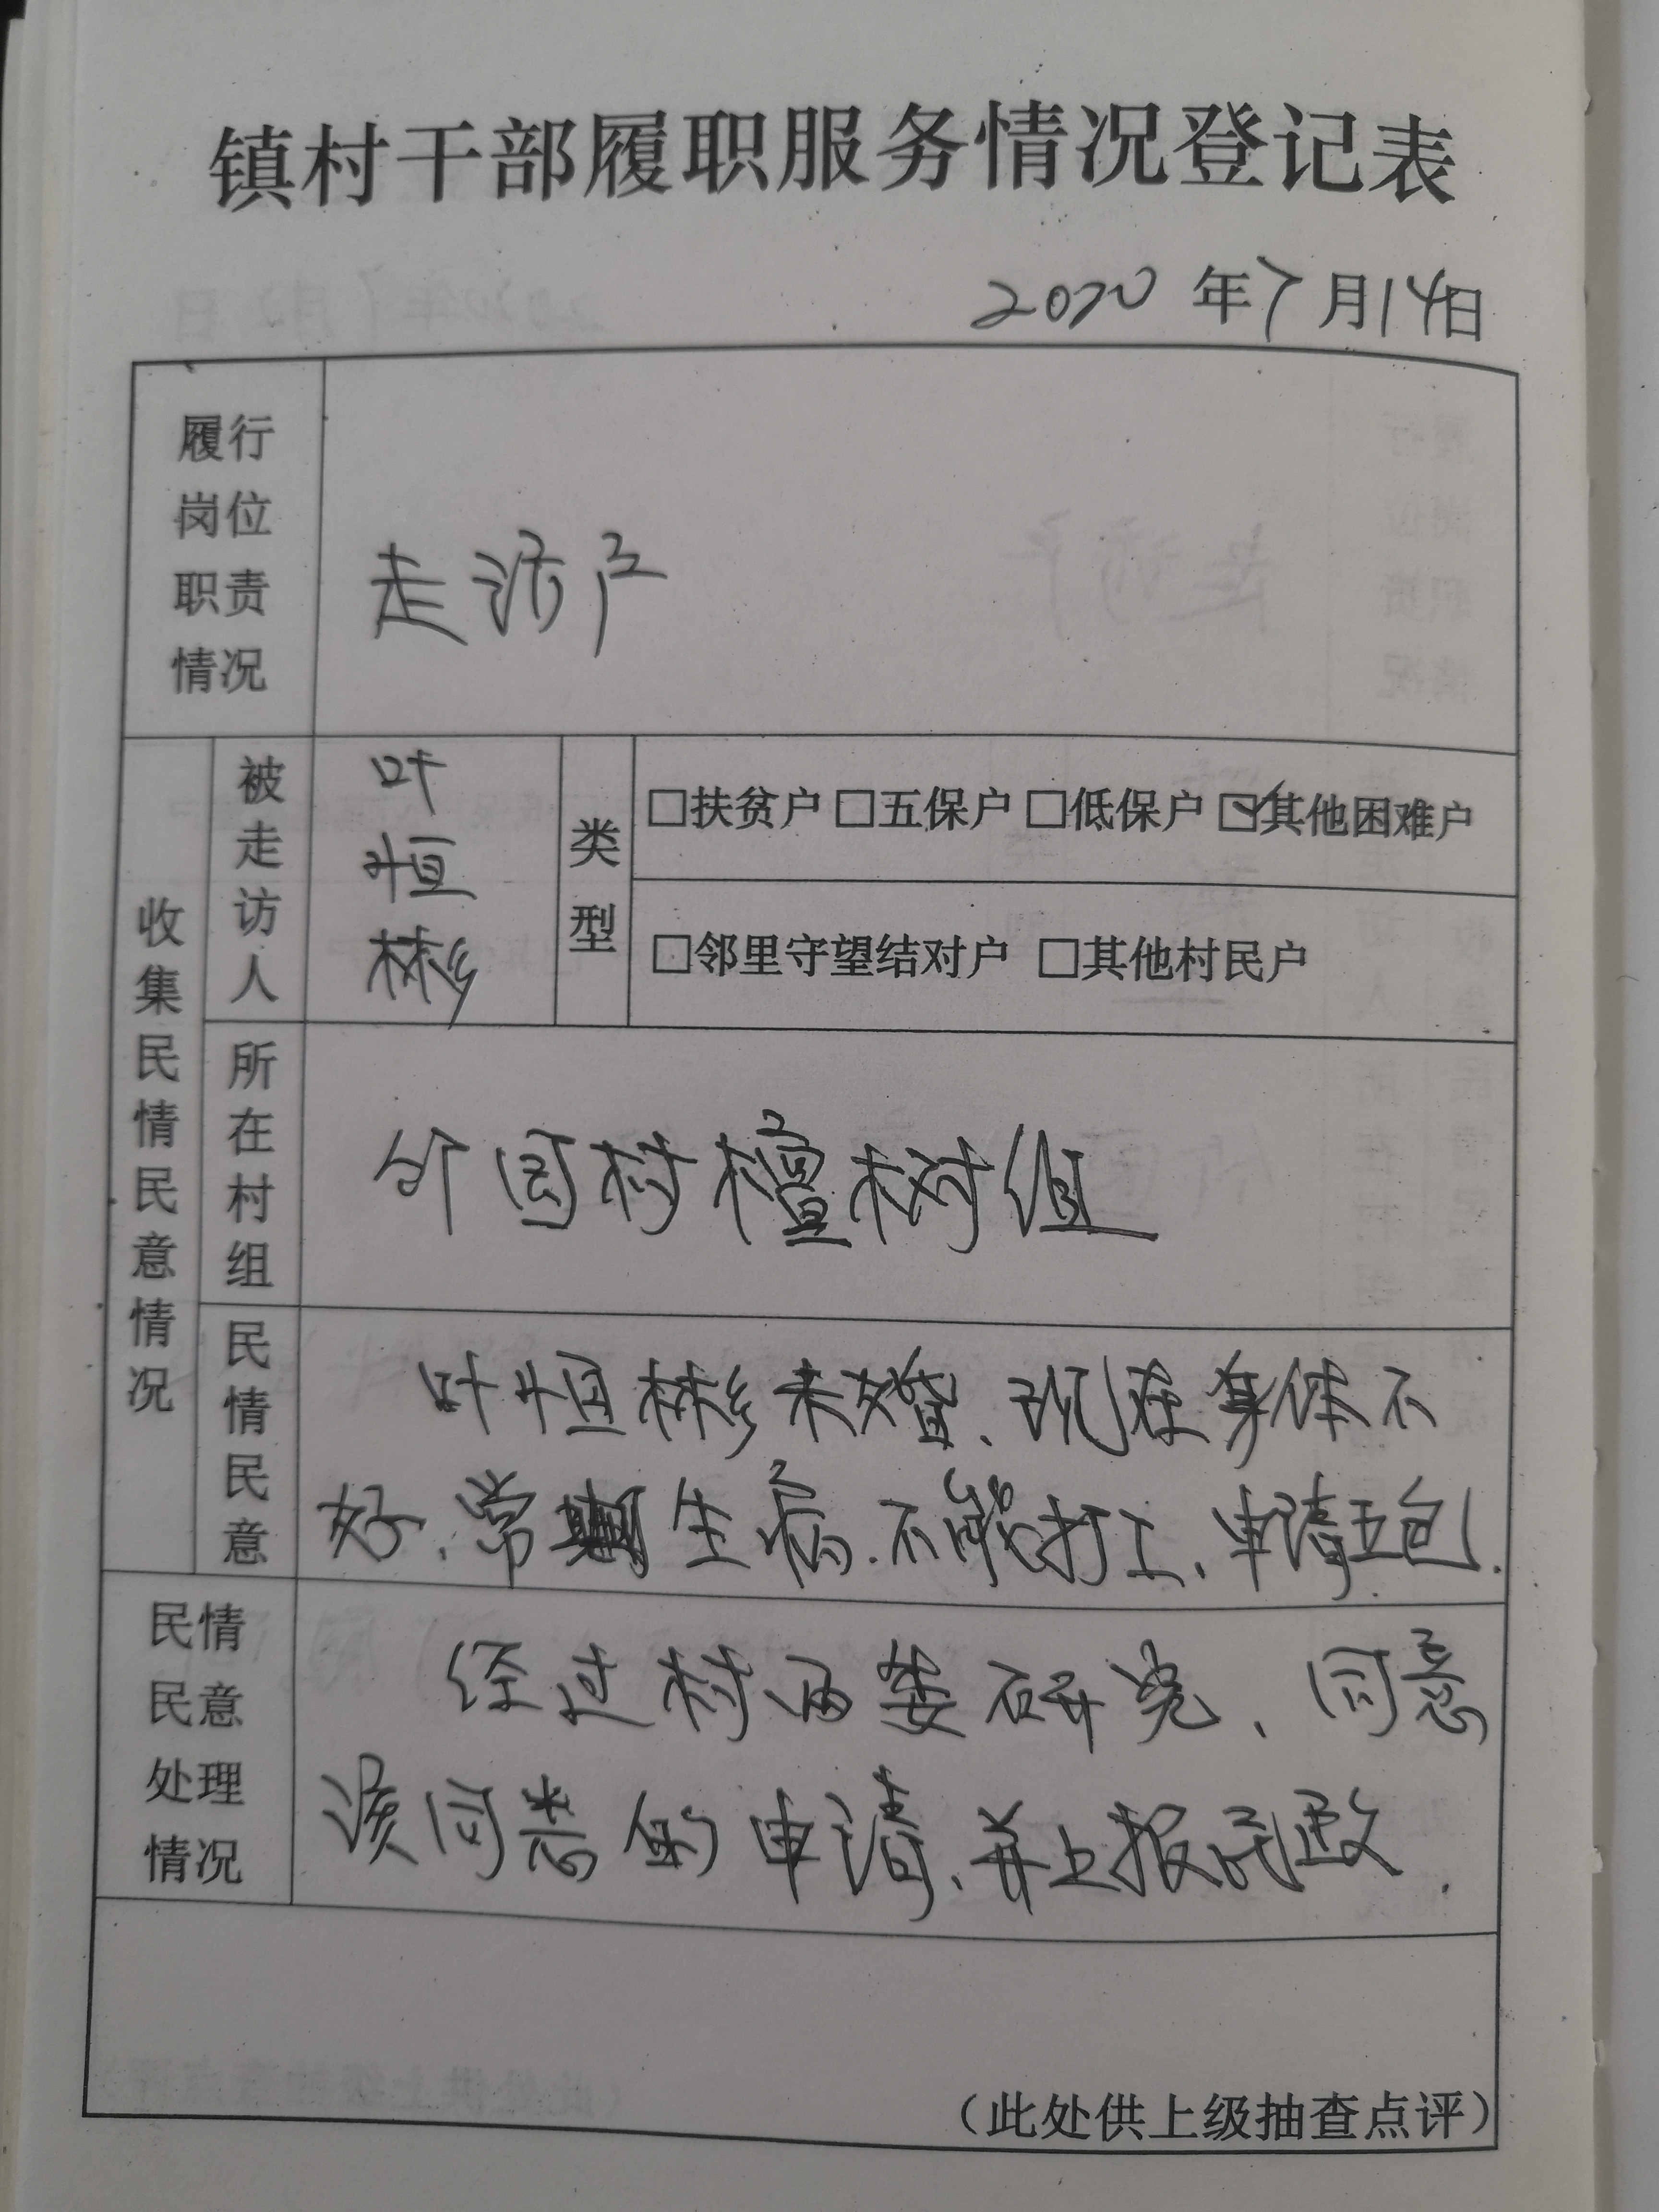 镇村干部履职服务情况登记表
2020年7月14日
履行
岗位
职责
情况
走访户
收集民情民意情况
被走访人
叶
恒
彬
类型
□扶贫户 □五保户 □低保户 ☑其他困难户
□邻里守望结对户 □其他村民户
所在村组
竹园村檀树组
民情民意
叶恒彬未婚、现在身体不
好、常生病.不能打工、申请五包.
民情
民意
处理
情况
经过村两委研究、同意
该同志的申请、并上报民政.
(此处供上级抽查点评)